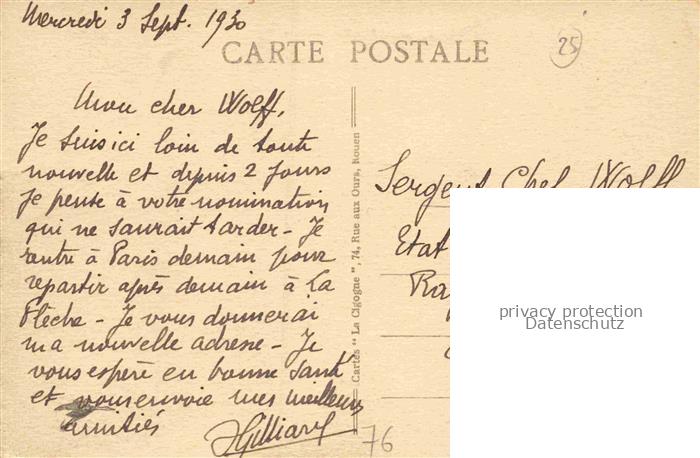 Mercredi 3 Sept. 1930
CARTE POSTALE
25
Mon cher Wolff,
Je suis ici loin de toute
nouvelle et depuis 2 jours
je pense à votre nomination
qui ne saurait tarder - Je
rentre à Paris demain pour
repartir après demain à La
Flèche - Je vous donnerai
ma nouvelle adresse - Je
vous espère en bonne santé
et vous envoie mes meilleures
amitiés
JGilliard
Cartes "La Cigogne", 74, Rue aux Ours, Rouen
Sergent Chef Wolff
Etat
76
privacy protection
Datenschutz